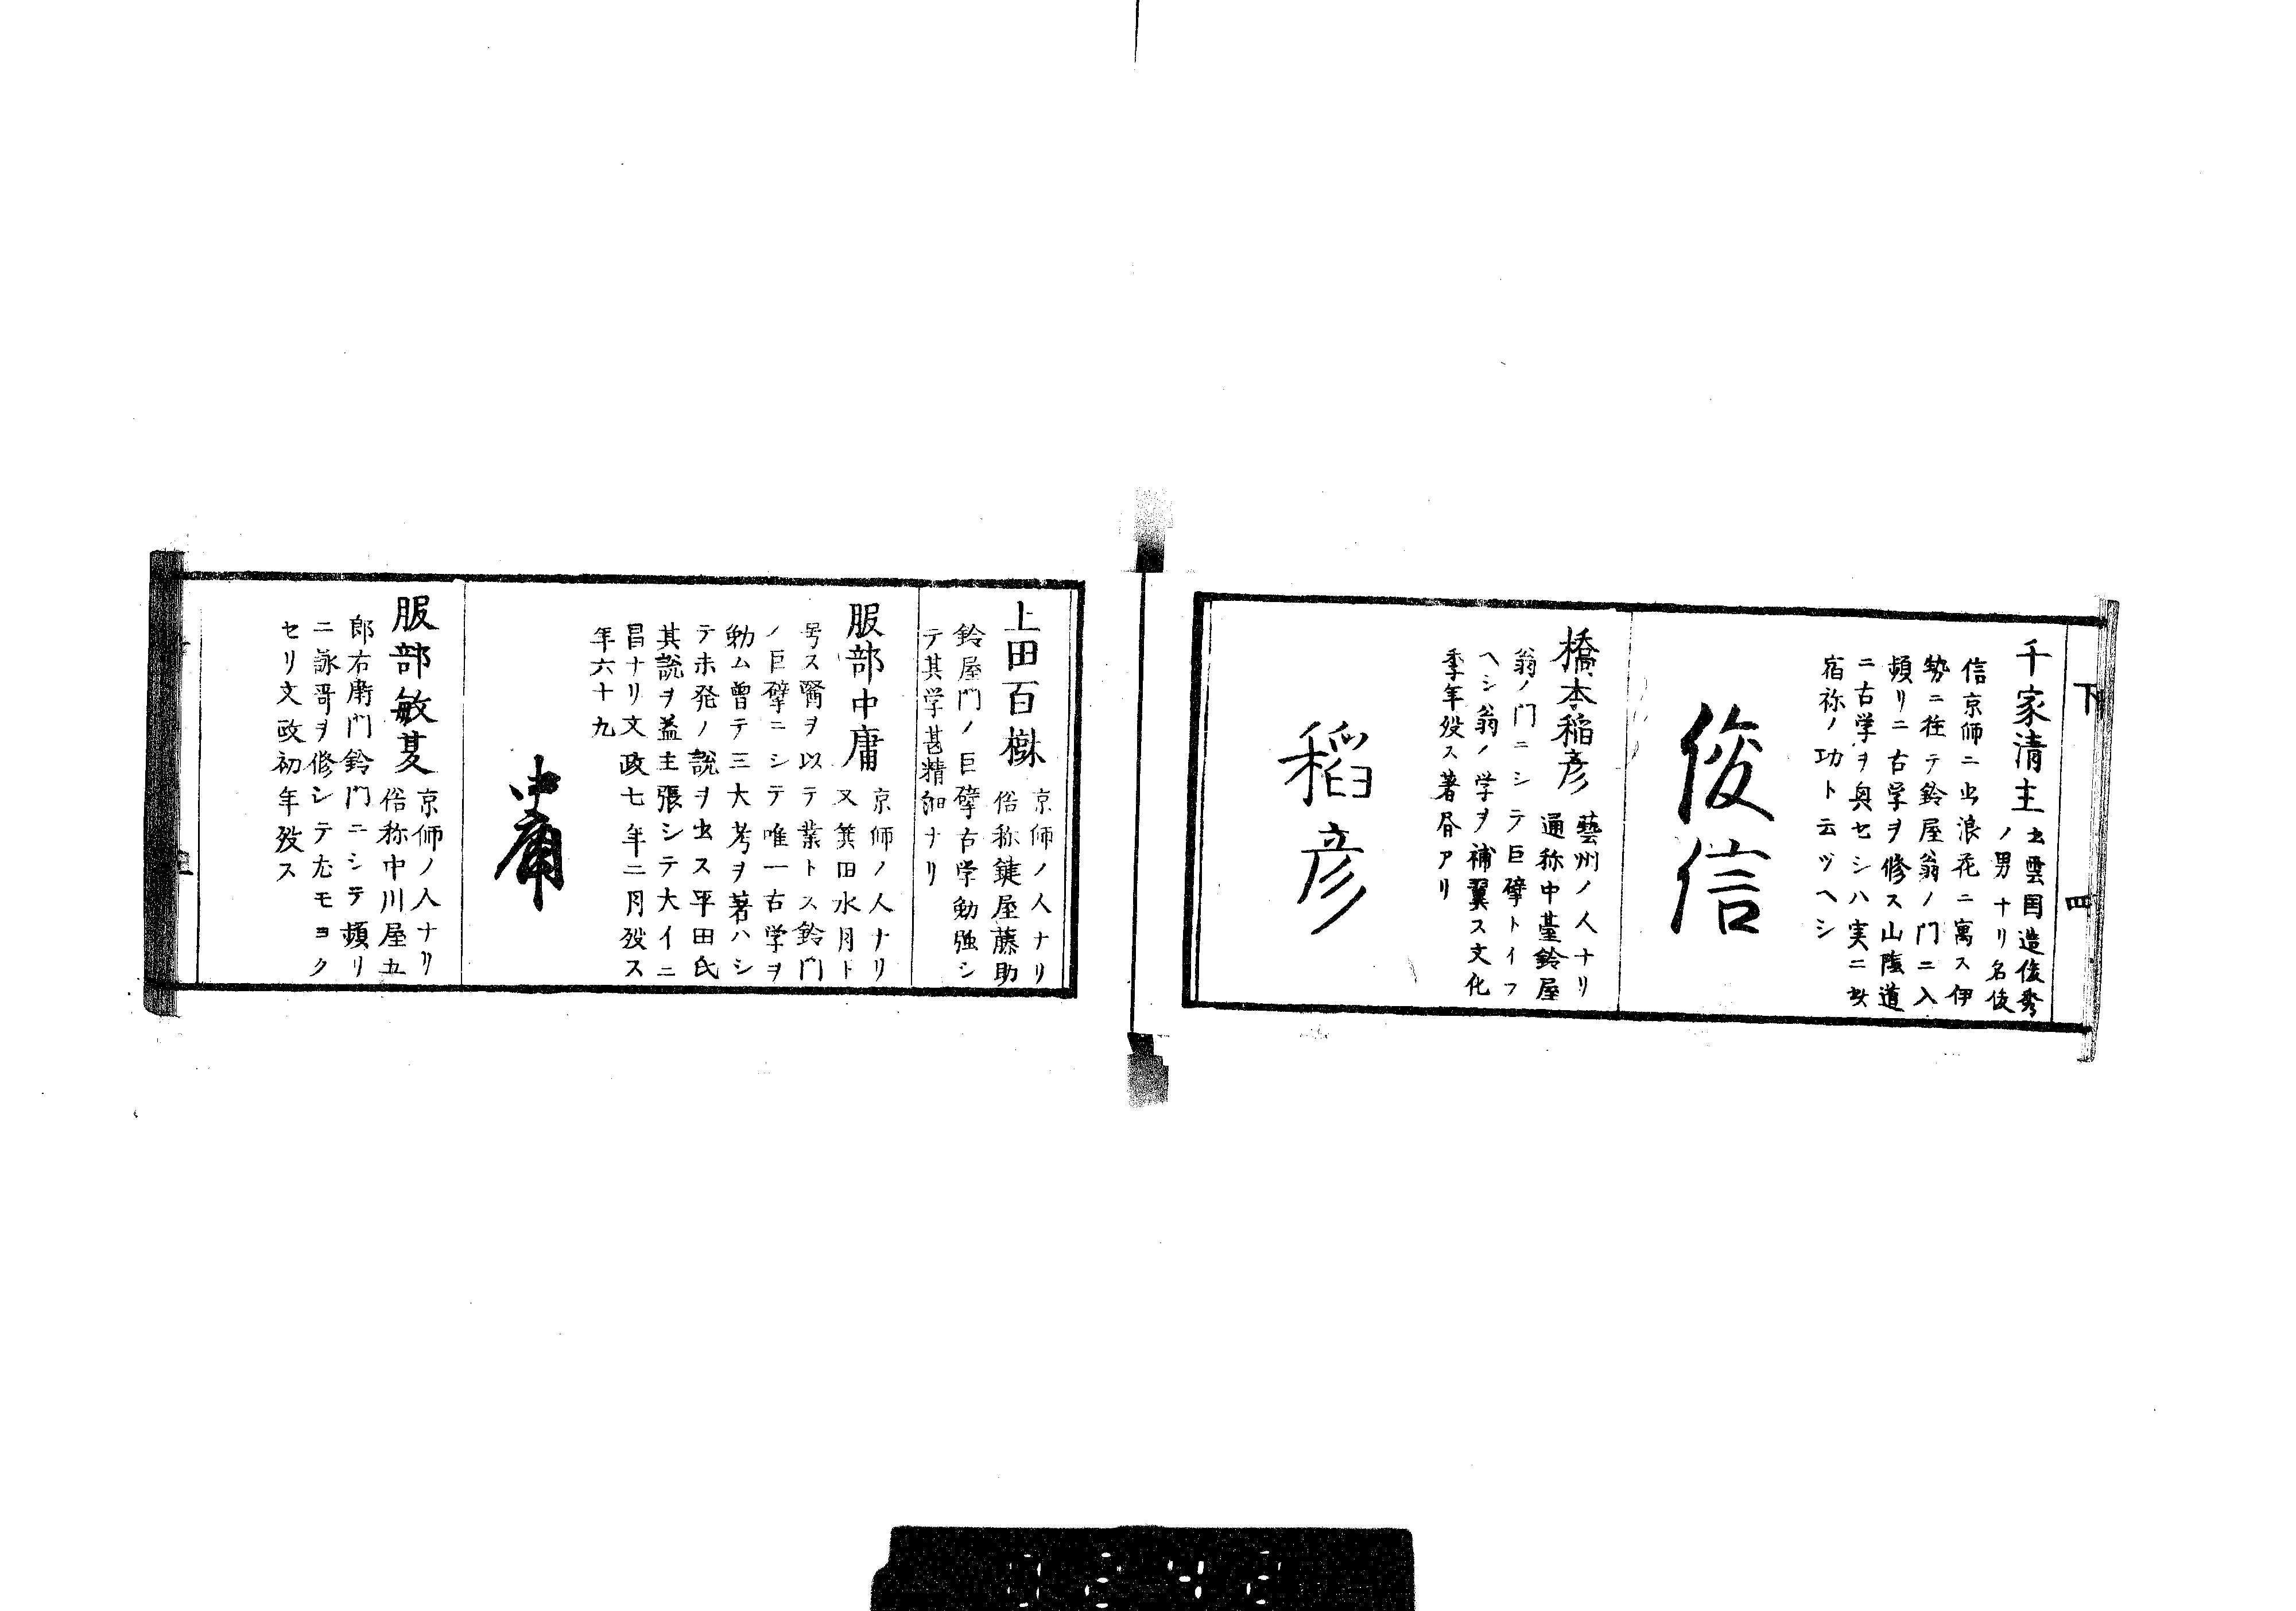 下
四
千家清主
出雲国造俊秀
ノ男ナリ名俊
信京師ニ出浪花ニ寓ス伊
勢ニ往テ鈴屋翁ノ門ニ入
頻リニ古学ヲ修ス山陰道
ニ古学ヲ興セシハ実ニ此
宿祢ノ功ト云ヅヘシ
俊信
橋本稲彦
藝州ノ人ナリ
通称中臺鈴屋
翁ノ門ニシテ巨擘トイフ
ヘシ翁ノ学ヲ補翼ス文化
季年歿ス著昏アリ
稻彦
上田百樹
京師ノ人ナリ
俗称鍵屋藤助
鈴屋門ノ巨擘古学勉強シ
テ其学甚精細ナリ
服部中庸
京師ノ人ナリ
又箕田水月ト
号ス醫ヲ以テ業トス鈴門
ノ巨擘ニシテ唯一古学ヲ
勉ム曾テ三大考ヲ著ハシ
テ未発ノ説ヲ出ス平田氏
其説ヲ益主張シテ大イニ
昌ナリ文政七年二月歿ス
年六十九
中庸
服部敏夏
京師ノ人ナリ
俗称中川屋五
郎右衛門鈴門ニシテ頻リ
ニ詠哥ヲ修シテ尤モヨク
セリ文政初年歿ス